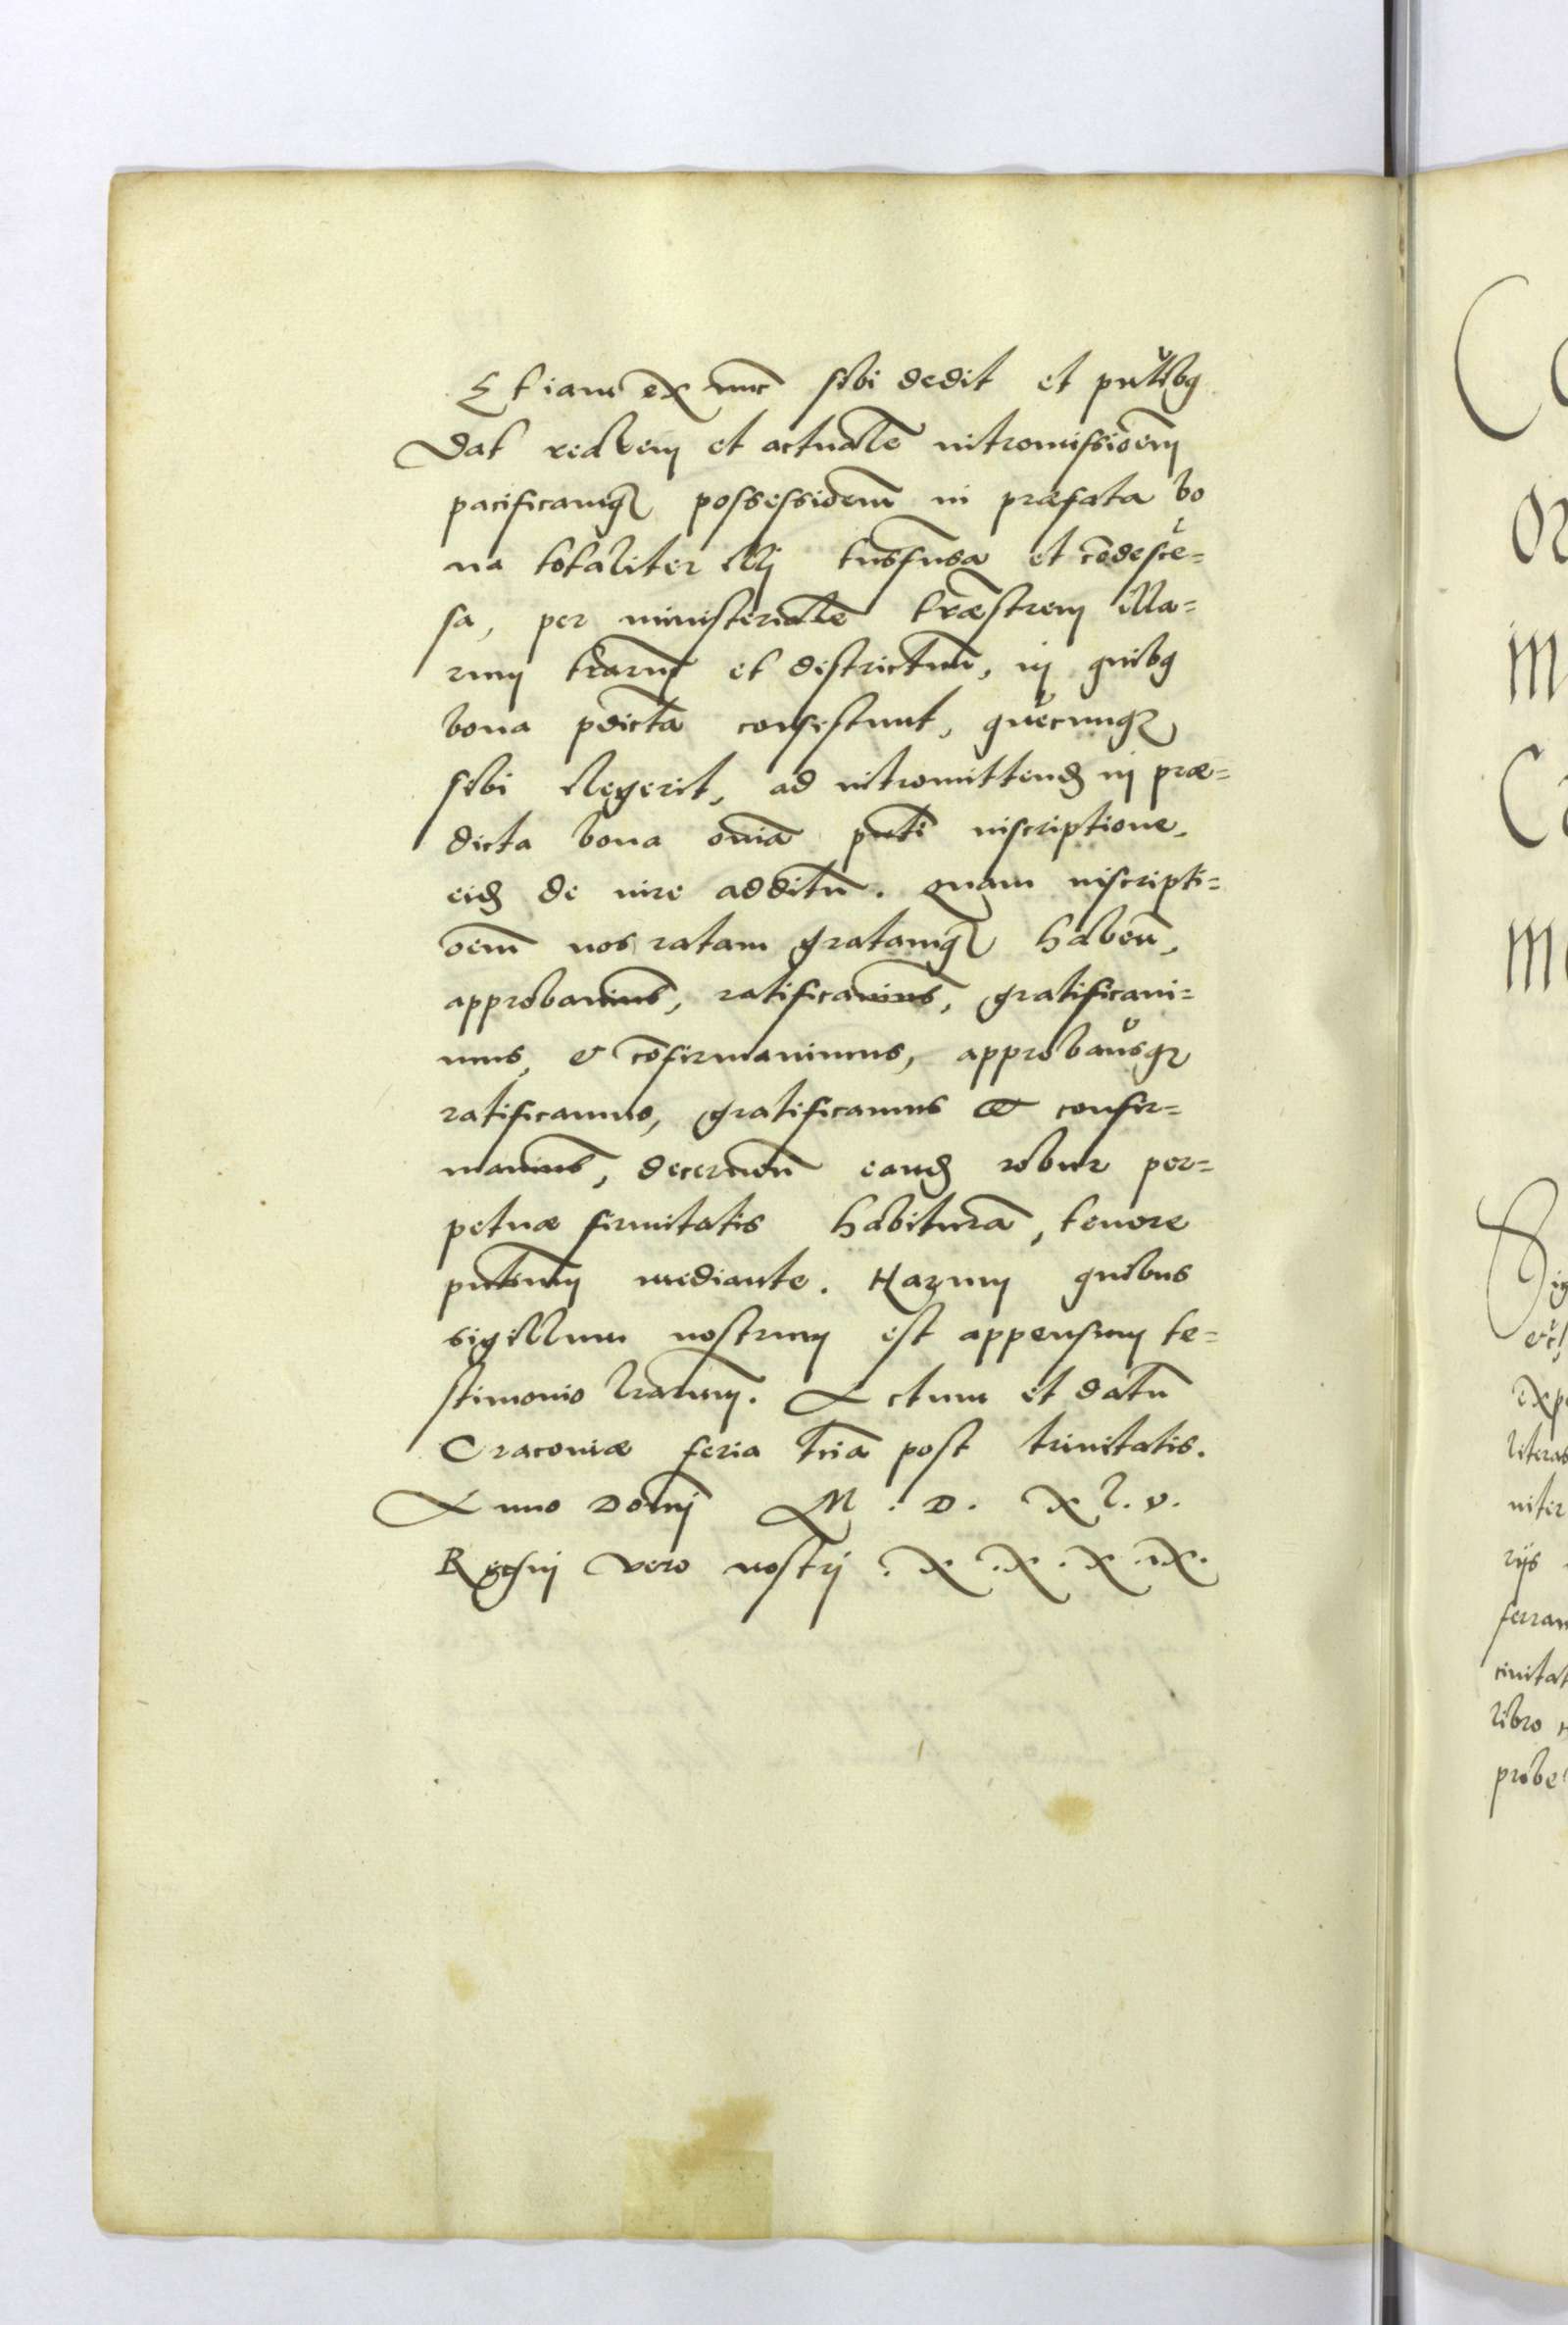 Et iam ex nũc sibi dedit et pñtibq
Dat realem et actualẽ intromissiõem
pacificamq possessiõem in præfata bo
na totaliter illi trãsfusa et cõdesce=
sa, per ministerialẽ træstrem illa=
rum trarũ et districtuũ, in quibq
bona pdicta consistunt, quẽcunqz
sibi elegerit, ad intromittend in præ=
dicta bona oĩa pñti inscriptione,
eid de iure additũ. Quam inscripti=
oẽm nos ratam gratamq habeñ,
approbauimus, ratificauimus, gratificaui=
mus, & cõfirmauimus, approbamusqz
ratificamus, gratificamus & confir=
mamus, decerneñ eand robur per=
petuæ firmitatis habiturã, tenore
pñtium mediante. Harum quibus
sigillum nostrum est appensum te=
stimonio lrarum. Actum et datũ
Cracouiæ feria tĩa post trinitatis.
Anno Domĩ M. D. Xl. v.
Regni vero nostri .X.X.X.ix.
Ca
or
im
Ca
ma
Sig
&c,
expo
literas
niter
rijs
ferran
ciuitat
libro
probe